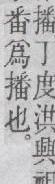 播丁度洪興祖
番爲播也。